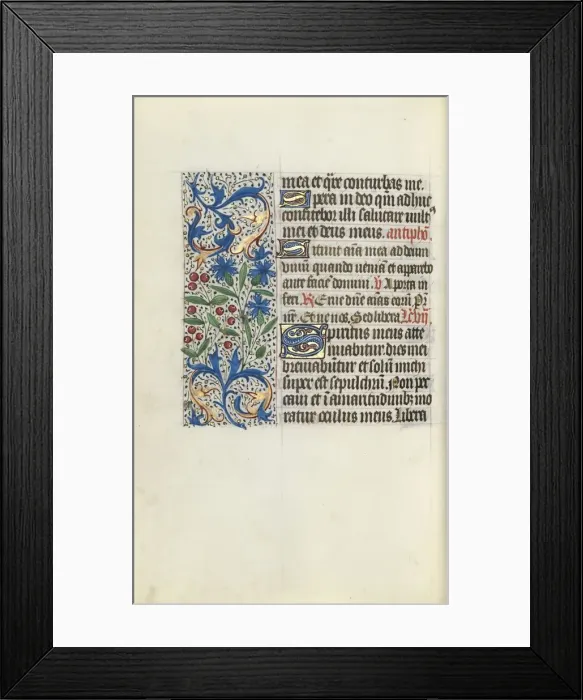 mea et q̄re conturbas me.
Spera in deo qm̄ adhuc
confitebor illi salutare vult⁹
mei et deus meus. antiphō.
Sitiuit aīa mea ad deum
viuum quando veniā et apparebo
ante faciē domini. ℣ A porta in
feri. ℟ Erue dn̄e aīas eorū. Pr̄
nr̄. Et ne nos. Sed libera. Lc̄
Spiritus meus atte
nuabitur dies mei
breuiabūtur et solū michi
super est sepulchrū. Non pec
caui et ī amaritudinibꝫ mo
ratur oculus meus. Libera